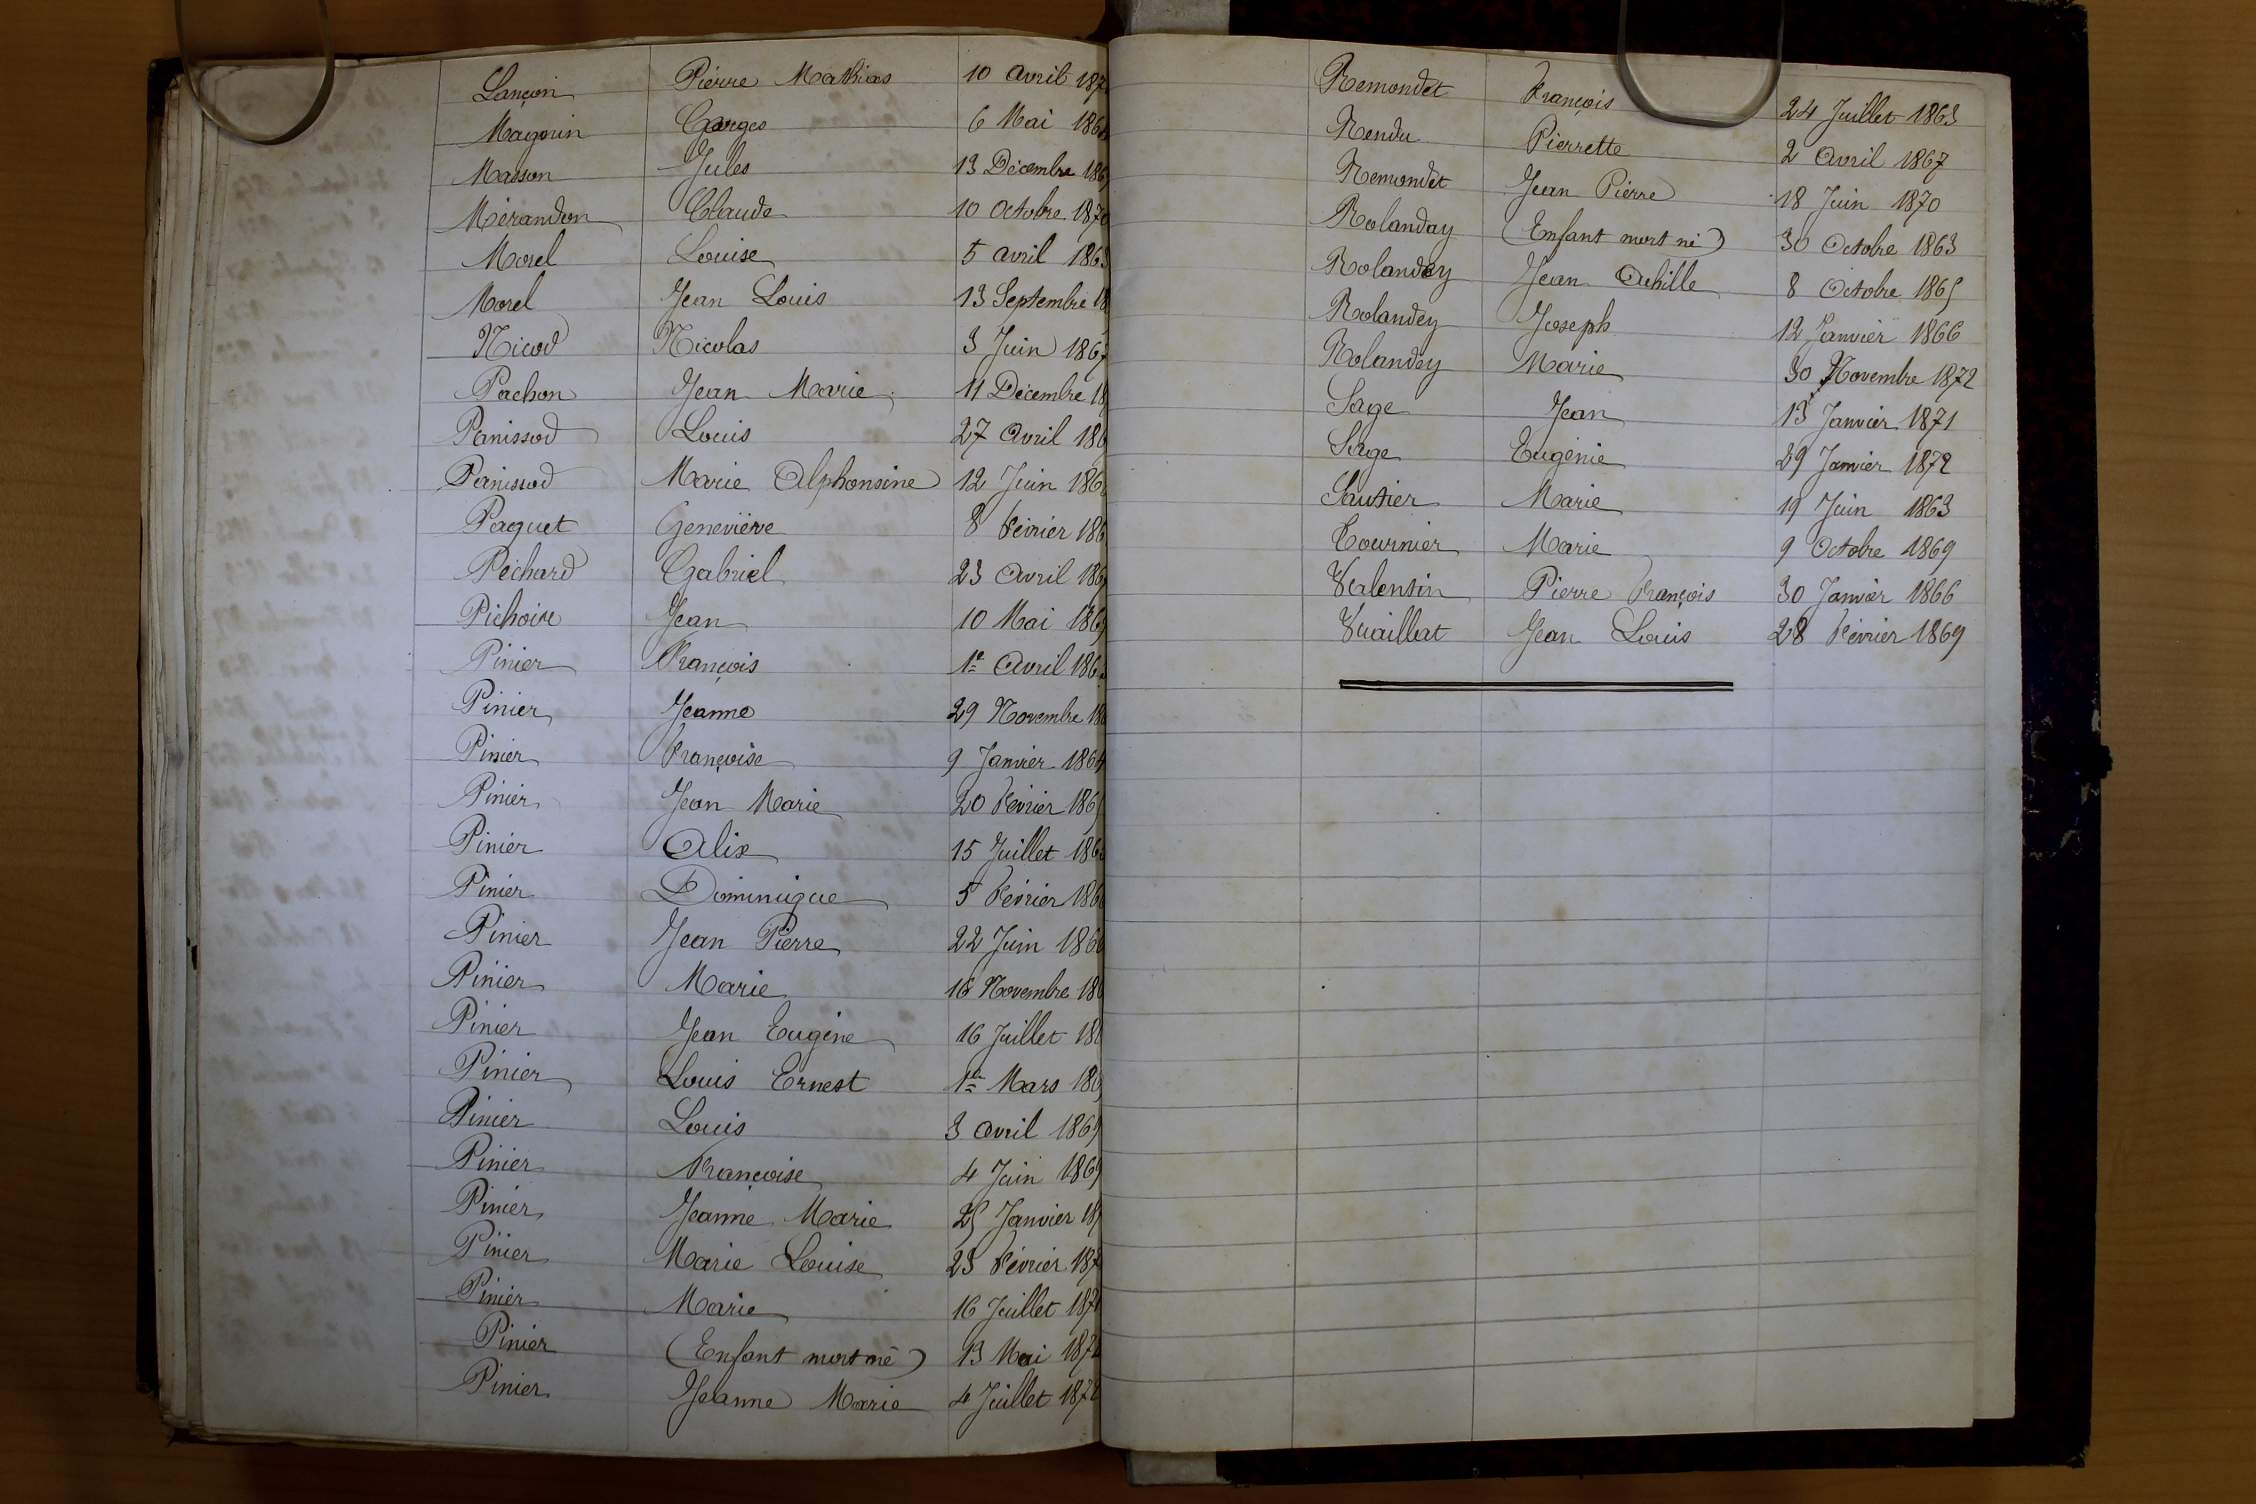 Lançon Pierre Mathias 10 avril 187
Magnin Georges 6 Mai 186
Masson Jules 13 Décembre 186
Mérandon Claude 10 Octobre 187
Morel Louise 5 avril 186
Morel Jean Louis 13 Septembre 18
Nicod Nicolas 3 Juin 186
Pachon Jean Marie 11 Décembre 18
Panissod Louis 27 avril 186
Panissod Marie Alphonsine 12 Juin 186
Paquet Geneviève 8 Février 186
Péchard Gabriel 23 avril 186
Pichoire Jean 10 Mai 186
Pinier François 1e avril 186
Pinier Jeanne 29 Novembre 18
Pinier Françoise 9 Janvier 1864
Pinier Jean Marie 20 Février 1865
Pinier Alix 15 Juillet 186
Pinier Dominique 5 Février 186
Pinier Jean Pierre 22 Juin 186
Pinier Marie 16 Novembre 18
Pinier Jean Eugène 16 Juillet 18
Pinier Louis Ernest 1er Mars 18
Pinier Louis 3 avril 1869
Pinier Françoise 4 Juin 1869
Pinier Jeanne Marie 25 Janvier 18
Pinier Marie Louise 23 Février 187
Pinier Marie 16 Juillet 187
Pinier (Enfant mort né) 13 Mai 187
Pinier Jeanne Marie 4 Juillet 187
Remondet François 24 Juillet 1863
Rendu Pierrette 2 avril 1867
Remondet Jean Pierre 18 Juin 1870
Rolanday (Enfant mort né) 30 Octobre 1863
Rolandey Jean Achille 8 Octobre 1865
Rolandey Joseph 12 Janvier 1866
Rolandey Marie 30 Novembre 1872
Sage Jean 13 Janvier 1871
Sage Eugénie 29 Janvier 1872
Sautier Marie 19 Juin 1863
Tournier Marie 9 Octobre 1869
Valentin Pierre François 30 Janvier 1866
Vuaillat Jean Louis 28 Février 1869